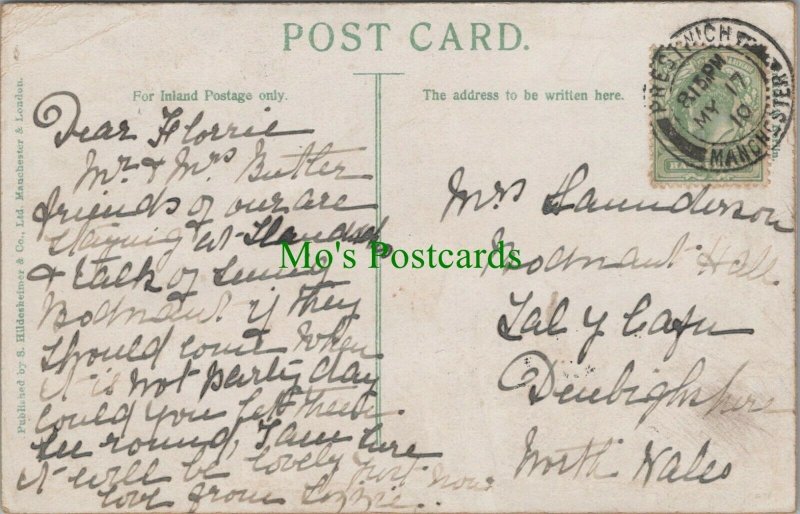 POST CARD.
For Inland Postage only.
The address to be written here.
Published by S. Hildesheimer & Co., Ltd. Manchester & London.
PRESTWICH
8.15 PM
MY 17
10
MANCHESTER
Dear Florrie
Mr. & Mrs Butler
friends of our are
staying at Llandud
& talk of seeing
Bodnant if they
should come when
it is not party day
could you let them
be round, I am sure
it will be lovely just now
love from Lizzie
Mrs Saunderson
Bodnant Hall
Tal y Cafn
Denbighshire
North Wales
Mo's Postcards